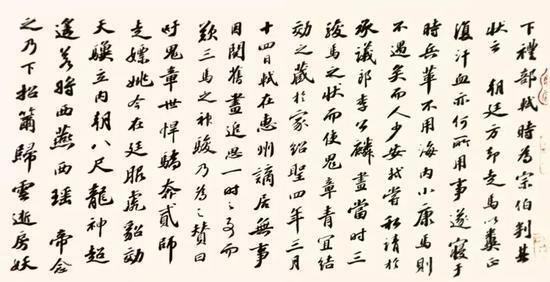 下禮部軾時為宗伯判其
状云 朝廷方却走馬以糞正
復汗血亦何所用事遂寢于
時兵革不用海内小康馬則
不遇矣而人少安軾嘗私請於
承議郎李公麟畫當時三
駿馬之状而使鬼章青宜結
効之藏於家紹聖四年三月
十四日軾在惠州謫居無事
因閱舊畫追思一時之事而
歎三馬之神駿乃為之賛曰
吁鬼章世悍驕奔貳師
走嫖姚今在廷服虎貂効
天驥立内朝八尺龍神超
遥若將西燕西瑶 帝念
之乃下招籋歸雲逝房妖